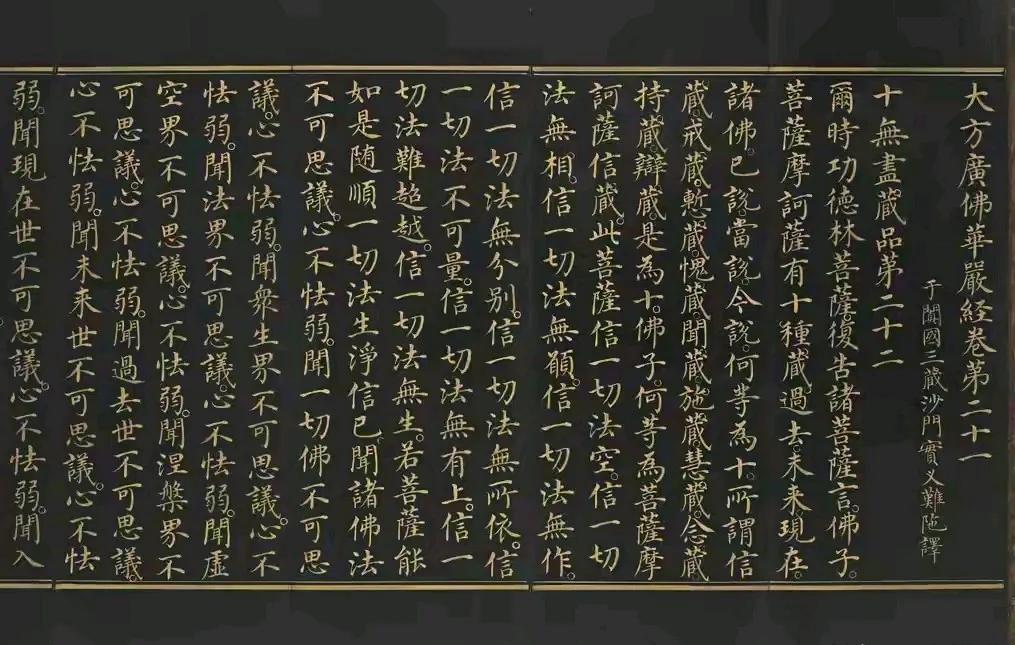 大方廣佛華嚴經卷第二十一
于闐國三藏沙門實叉難陁譯
十無盡藏品第二十二
爾時功德林菩薩復告諸菩薩言。佛子。
菩薩摩訶薩有十種藏。過去。未來現在。
諸佛。已說。當說。今說。何等為十。所謂信
藏。戒藏。慙藏。愧藏。聞藏施藏。慧藏。念藏
持。藏。辯藏。是為十。佛子。何等為菩薩摩
訶薩信藏。此菩薩信一切法空。信一切
法無相。信一切法無願。信一切法無作。
信一切法無分别。信一切法無所依。信
一切法不可量。信一切法無有上。信一
切法難超越。信一切法無生。若菩薩能
如是随順一切法生淨信已。聞諸佛法
不可思議。心不怯弱。聞一切佛不可思
議。心不怯弱。聞衆生界不可思議。心不
怯弱。聞法界不可思議。心不怯弱。聞虛
空界不可思議。心不怯弱。聞涅槃界不
可思議。心不怯弱。聞過去世不可思議。
心不怯弱。聞未来世不可思議。心不怯
弱。聞現在世不可思議。心不怯弱。聞入